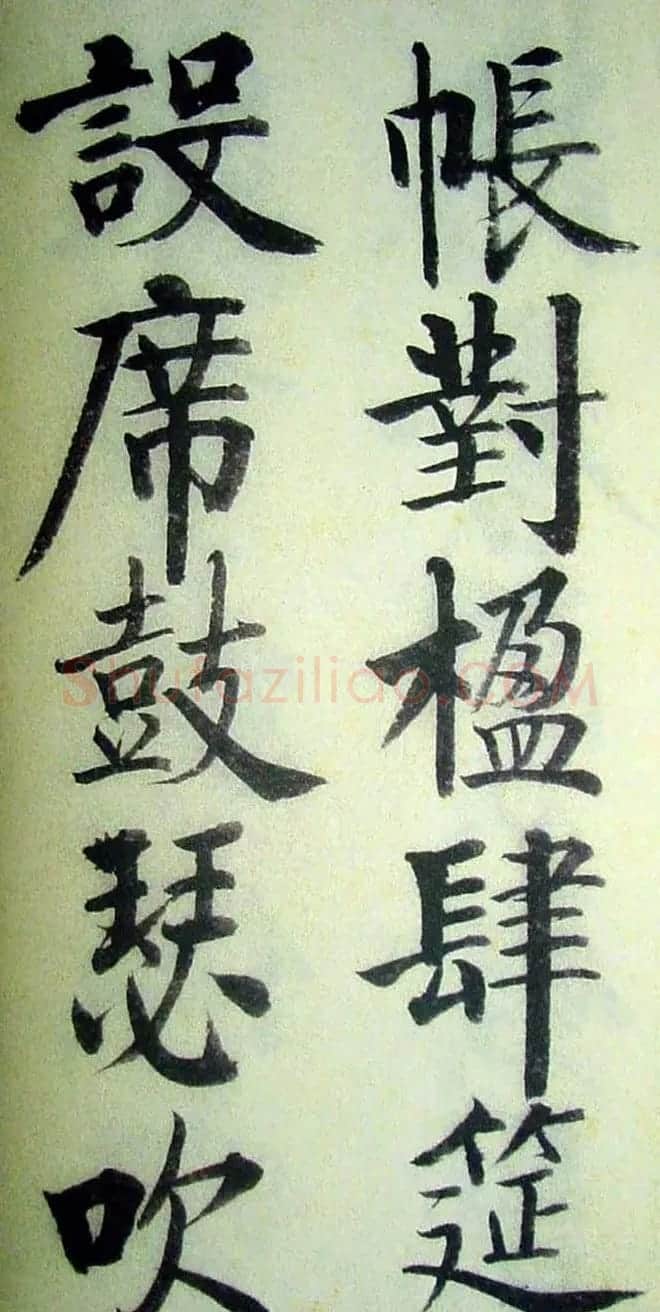 帳對楹肆筵
設席鼓瑟吹
Shufaziliao.COM